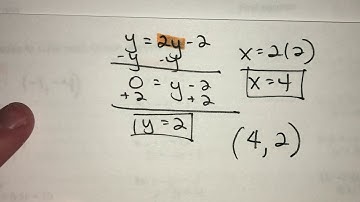 y = 2y - 2
-y -y
0 = y - 2
+2 +2
y = 2
x = 2(2)
x = 4
(4, 2)